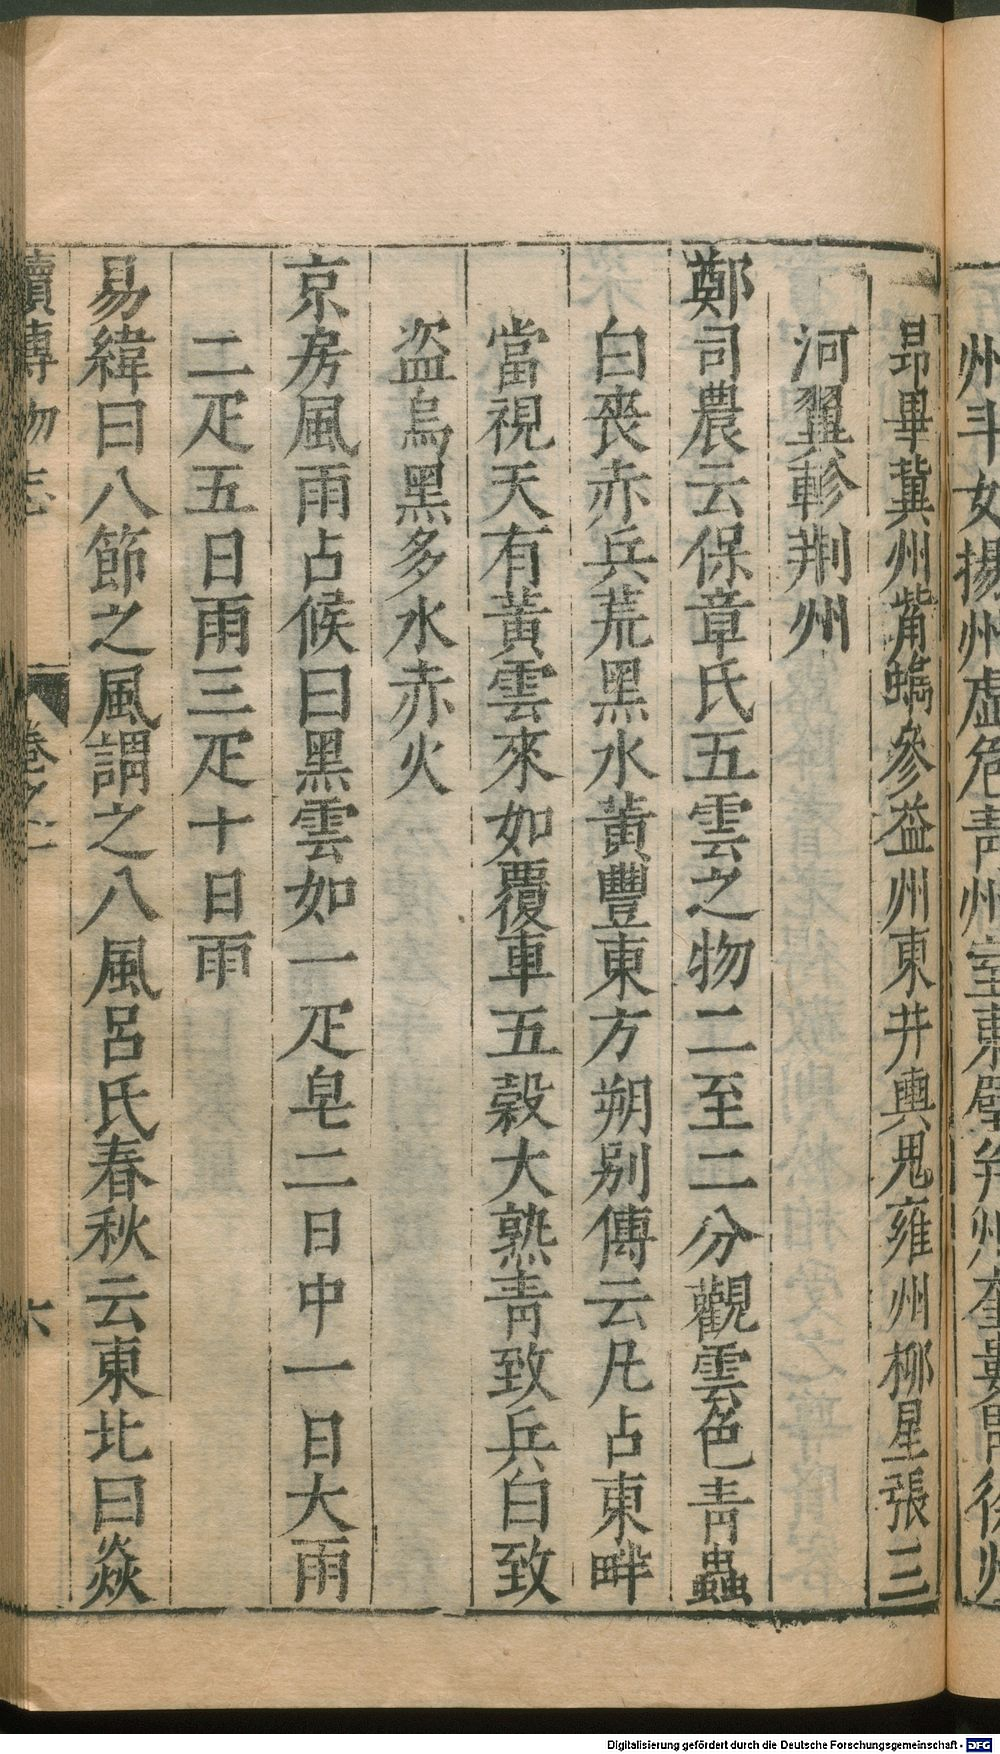 州斗女揚州虛危青州室東壁并州奎婁胃徐州
昴畢冀州觜蠵參益州東井輿鬼雍州柳星張三
河翼軫荆州
鄭司農云保章氏五雲之物二至二分觀雲色青蟲
白喪赤兵荒黑水黃豐東方朔别傳云凡占東畔
當視天有黃雲來如覆車五穀大熟青致兵白致
盜烏黑多水赤火
京房風雨占候曰黑雲如一疋皂二日中一日大雨
二疋五日雨三疋十日雨
易緯曰八節之風謂之八風呂氏春秋云東北曰焱
續博物志 卷之一 六
Digitalisierung gefördert durch die Deutsche Forschungsgemeinschaft - DFG